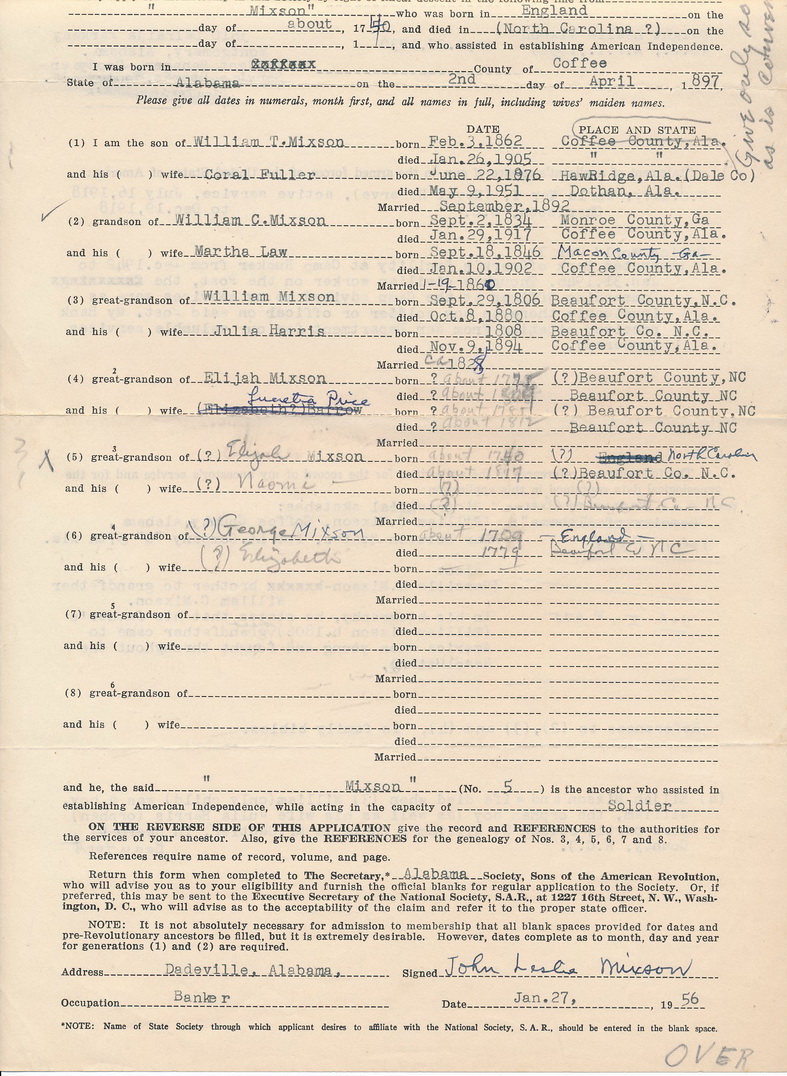 " Mixson" who was born in England on the
day of about, 1740, and died in (North Carolina ?) on the
day of , 1 , and who assisted in establishing American Independence.
I was born in County of Coffee
State of Alabama on the 2nd day of April, 1897,
Please give all dates in numerals, month first, and all names in full, including wives' maiden names.
Give only so
as is conven
DATE PLACE AND STATE
(1) I am the son of William T.Mixson born Feb.3,1862 Coffee County,Ala.
died Jan.26,1905 " "
and his ( ) wife Coral Fuller born June 22,1876 HawRidge,Ala.(Dale Co)
died May 9,1951 Dothan, Ala.
Married September,1892
(2) grandson of William C.Mixson born Sept.2,1834 Monroe County,Ga
died Jan.29,1917 Coffee County,Ala.
and his ( ) wife Martha Law born Sept.18,1846 Macon County Ga
died Jan.10,1902 Coffee County,Ala.
Married 1-19-1860
(3) great-grandson of William Mixson born Sept.29,1806 Beaufort County,N.C.
died Oct.8,1880 Coffee County,Ala.
and his ( ) wife Julia Harris born 1808 Beaufort Co. N.C.
died Nov.9,1894 Coffee County,Ala.
Married Ca 1828
2
(4) great-grandson of Elijah Mixson born ? about (?)Beaufort County,NC
died ? about Beaufort County NC
Lucretia Price
and his ( ) wife (Elizabeth?)Barrow born ? about (?) Beaufort County,NC
died ? about 1812 Beaufort County NC
Married
3
(5) great-grandson of (?) Elijah Mixson born about 1740 (?) England North Carolina
died about 1817 (?)Beaufort Co. N.C.
and his ( ) wife (?) Naomi born (?) (?)
died (?) (?) Beaufort Co. N.C.
Married
4
(6) great-grandson of (?) George Mixson born about England
(?) Elizabeth died 1779 Beaufort Co NC
and his ( ) wife born
died
Married
5
(7) great-grandson of born
died
and his ( ) wife born
died
Married
6
(8) great-grandson of born
died
and his ( ) wife born
died
Married
and he, the said " Mixson " (No. 5 ) is the ancestor who assisted in
establishing American Independence, while acting in the capacity of Soldier
ON THE REVERSE SIDE OF THIS APPLICATION give the record and REFERENCES to the authorities for
the services of your ancestor. Also, give the REFERENCES for the genealogy of Nos. 3, 4, 5, 6, 7 and 8.
References require name of record, volume, and page.
Return this form when completed to The Secretary,* Alabama Society, Sons of the American Revolution,
who will advise you as to your eligibility and furnish the official blanks for regular application to the Society. Or, if
preferred, this may be sent to the Executive Secretary of the National Society, S.A.R., at 1227 16th Street, N. W., Wash-
ington, D. C., who will advise as to the acceptability of the claim and refer it to the proper state officer.
NOTE: It is not absolutely necessary for admission to membership that all blank spaces provided for dates and
pre-Revolutionary ancestors be filled, but it is extremely desirable. However, dates complete as to month, day and year
for generations (1) and (2) are required.
Address Dadeville, Alabama, Signed John Leslie Mixson
Occupation Banker Date Jan.27, , 19 56
*NOTE: Name of State Society through which applicant desires to affiliate with the National Society, S. A. R., should be entered in the blank space.
OVER